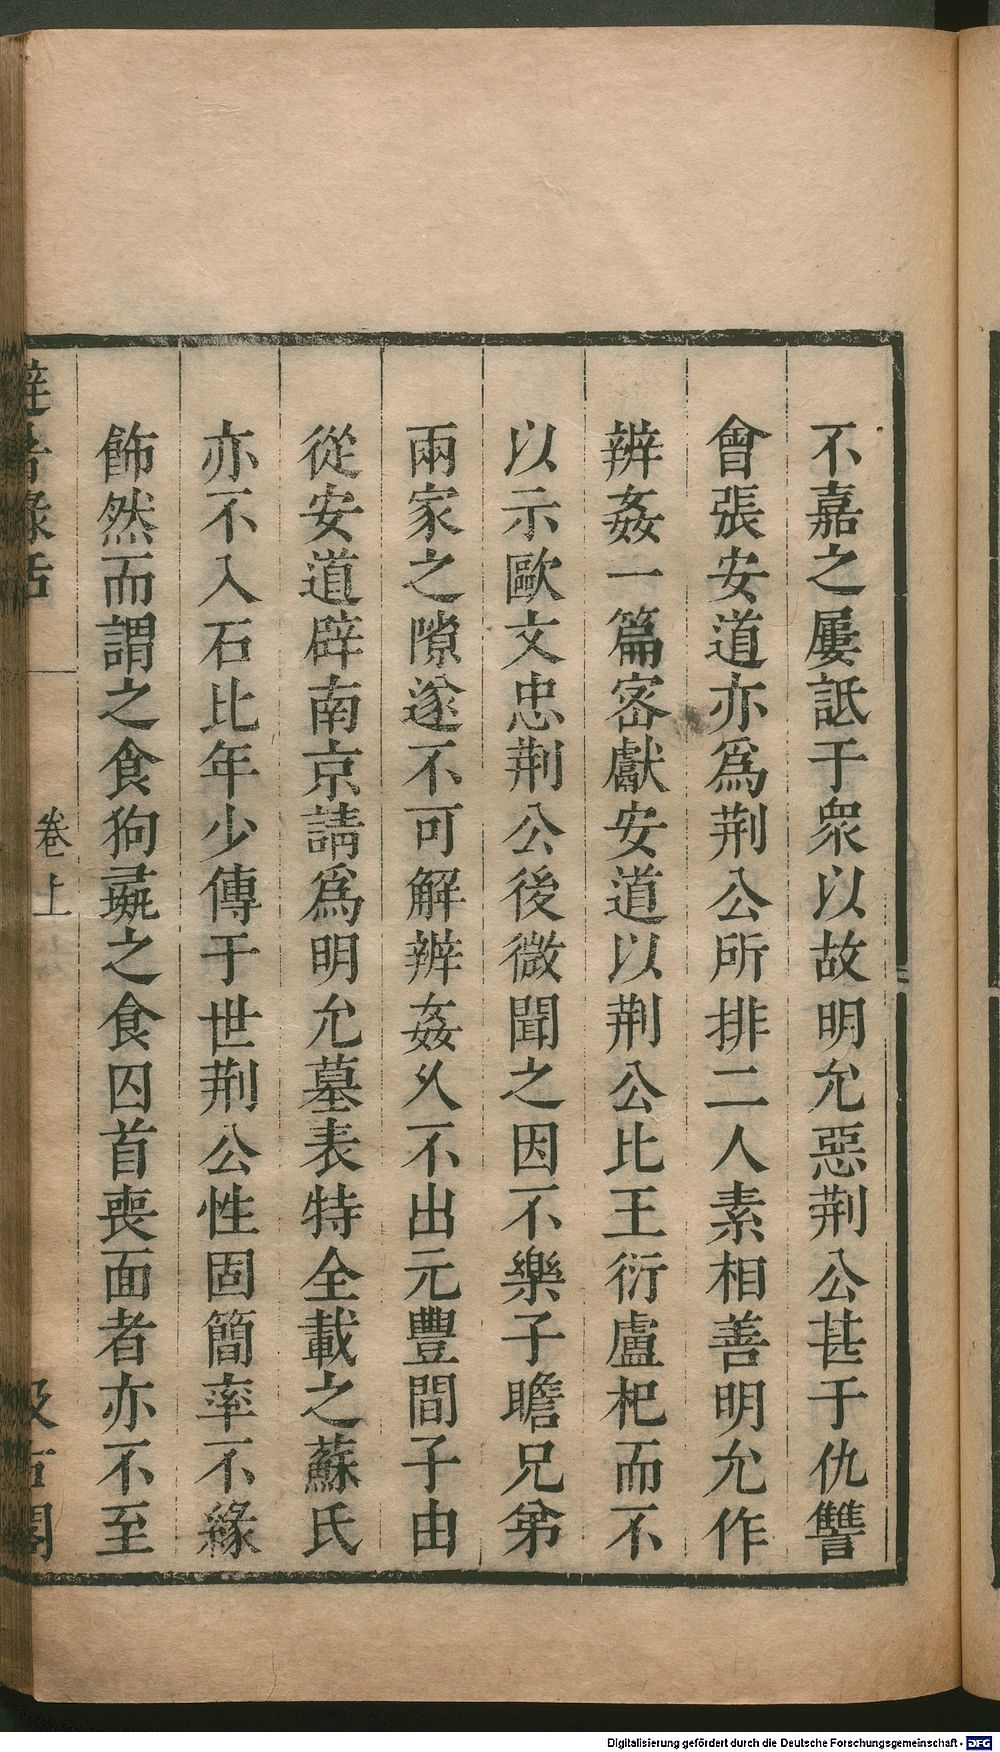 不嘉之屢詆于衆以故明允惡荆公甚于仇讐
會張安道亦爲荆公所排二人素相善明允作
辨姦一篇密獻安道以荆公比王衍盧杞而不
以示歐文忠荆公後微聞之因不樂子瞻兄弟
兩家之隙遂不可解辨姦久不出元豐間子由
從安道辟南京請爲明允墓表特全載之蘇氏
亦不入石比年少傳于世荆公性固簡率不緣
飾然而謂之食狗彘之食囚首喪面者亦不至
避暑錄話
卷上
汲古閣
Digitalisierung gefördert durch die Deutsche Forschungsgemeinschaft - DFG